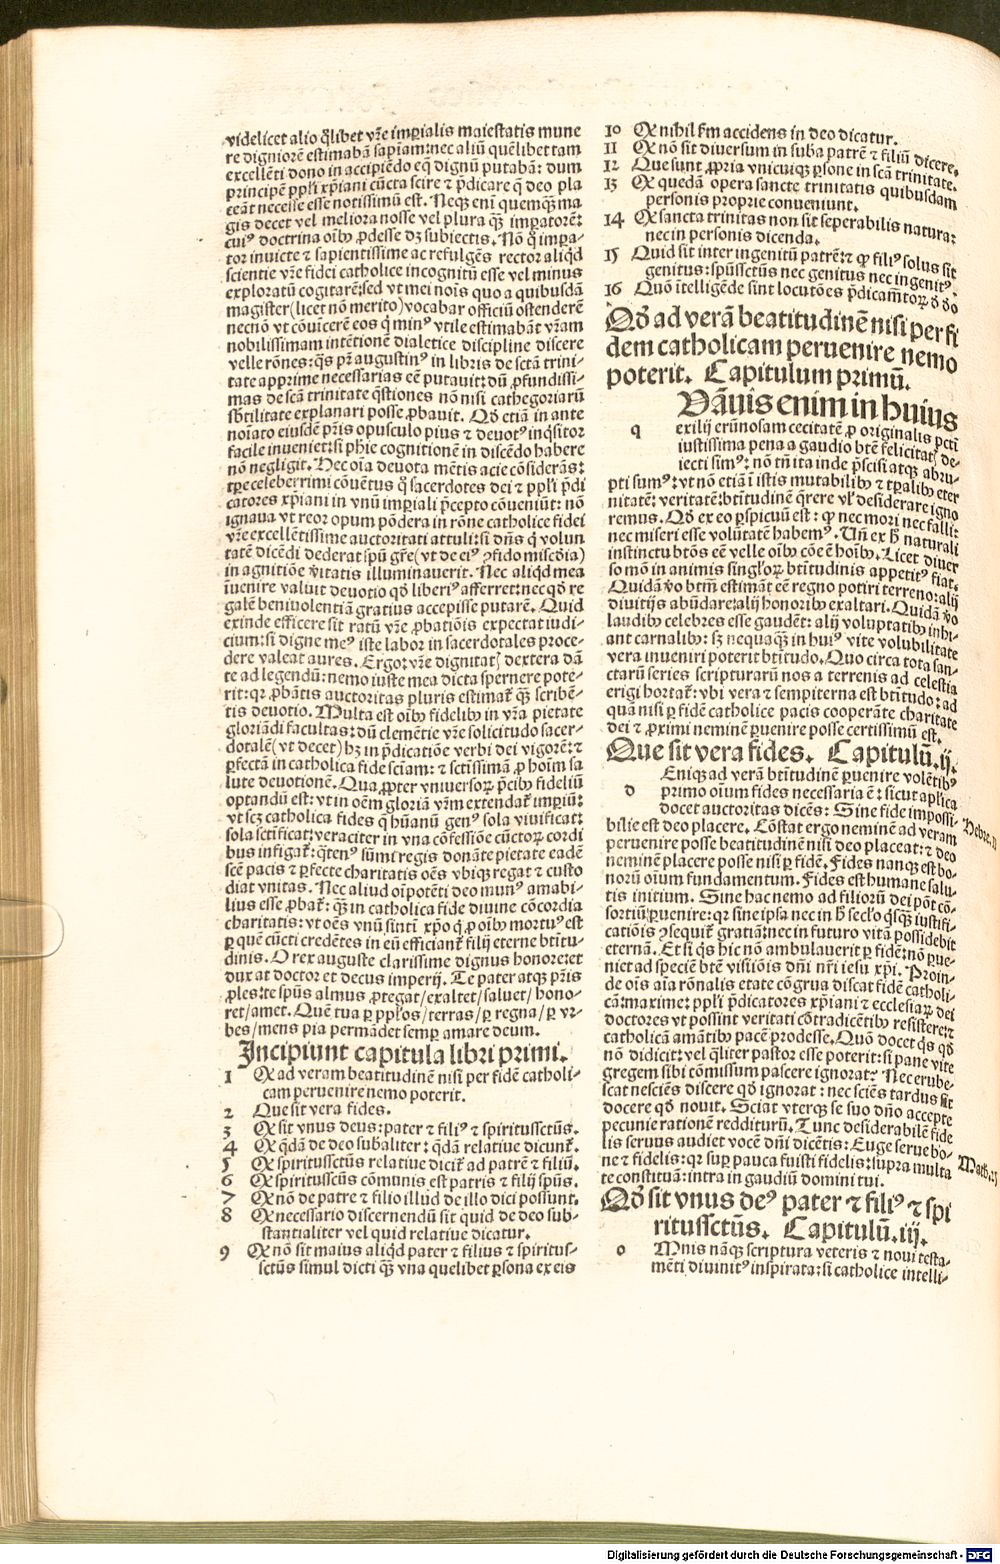 videlicet alio q̃libet vr̃e imꝑialis maiestatis mune
re digniorẽ estimabã sapiam: nec aliũ quẽlibet tam
excellẽti dono in accipiẽdo eq̃ dignũ putabã: dum
principẽ ppl'i xp̃iani cũcta scire ⁊ p̃dicare q̃ deo pla
ceãt necesse esse notissimũ est. Neqꝫ eni quemqꝫ ma
gis decet vel meliora nosse vel plura qꝫ imꝑatorẽ:
cui⁹ doctrina oĩbꝰ ꝓdesse dꝫ subiectis. Nõ q̃ imꝑa-
tor inuicte ⁊ sapientissime ac refulgẽs rector aliqd
scientie vr̃e fidei catholice incognitũ esse vel minus
exploratũ cogitarẽ: sed vt mei nois quo a quibusdã
magister (licet nõ merito) vocabar officiũ ostenderẽ
necnõ vt cõuicerẽ eos q̃ min⁹ vtile estimabãt vr̃am
nobilissimam intẽtionẽ dialetice discipline discere
velle rõnes: q̃s pr̃ augustin⁹ in libris de sctã trini-
tate apprime necessarias eẽ putauit: dũ ꝓfundissi-
mas de scã trinitate q̃stiones nõ nisi cathegoriarũ
sb̃tilitate explanari posse ꝓbauit. Qd̃ etiã in ante
noĩato eiusdẽ pr̃is opusculo pius ⁊ deuot⁹ inq̃sitor
facile inueniet: si ꝑhic cognitionẽ in discẽdo habere
nõ negligit. Hec oĩa deuota mẽtis acie cõsiderãs:
tꝑe celeberrimi cõuẽtus q̃ sacerdotes dei ⁊ ppl'i p̃di
catores xp̃iani in vnũ imꝑiali p̃cepto cõueniũt: nõ
ignaua vt reor opum põdera in rõne catholice fidei
vr̃e excellẽtissime auctoritati attuli: si dñs q̃ volun
tatẽ dicẽdi dederat spũ gr̃e (vt de ei⁹ ↄfido miscd̃ia)
in agnitiõe ṽitatis illuminauerit. Nec aliqd mea
ĩuenire valuit deuotio qd̃ liberi⁹ afferret: nec qd̃ re
galẽ beniuolentiã gratius accepisse putarẽ. Quid
exinde efficere sit ratũ vr̃e ꝓbatiõis expectat iudi-
cium: si digne me⁹ iste labor in sacerdotales proce-
dere valeat aures. Ergo: vr̃e dignitatꝭ dextera dã
te ad legendũ: nemo iuste mea dicta spernere pote-
rit: qr ꝓbãtis auctoritas pluris estimat̃ qꝫ scribẽ-
tis deuotio. Multa est oĩbꝰ fidelibꝰ in vr̃a pietate
gloriãdi facultas: dũ clemẽtie vr̃e solicitudo sacer-
dotalẽ (vt decet) hꝫ in p̃dicatiõe verbi dei vigorẽ: ⁊
ꝑfectã in catholica fide sciam: ⁊ sctissimã ꝓ hoim sa
lute deuotionẽ. Qua ꝓpter vniuersoꝝ p̃cibꝰ fideliũ
optandũ est: vt in oẽm gloriã vr̃m extendat̃ imꝑiũ:
vt scꝫ catholica fides q̃ hũanũ gen⁹ sola viuificat:
sola sctificat: veraciter in vna cõfessiõe cũctoꝝ cordi
bus infigat̃: q̃ten⁹ sũmi regis donãte pietate eadẽ
scẽ pacis ⁊ ꝑfecte charitatis oẽs vbiqꝫ regat ⁊ custo
diat vnitas. Nec aliud oĩpotẽti deo mun⁹ amabi-
lius esse ꝓbat̃: qꝫ in catholica fide diuine cõcordia
charitatis: vt oẽs vnũ sint i xp̃o q̃ ꝓ oĩbꝰ mortu⁹ est
ꝑ quẽ cũcti credẽtes in eũ efficiant̃ filij eterne btĩtu-
dinis. O rex auguste clarissime dignus honore: et
dux at doctor et decus imperij. Te pater atqꝫ pr̃is
ꝓles: te spũs almus ꝓtegat/exaltet/saluet/hono-
ret/amet. Quẽ tua ꝑ ppl'os/terras/ꝑ regna/ꝑ vr-
bes/mens pia permãdet semꝑ amare deum.
Incipiunt capitula libri primi.
1 Qꝫ ad veram beatitudinẽ nisi per fidẽ catholi-
cam peruenire nemo poterit.
2 Que sit vera fides.
3 Qꝫ sit vnus deus: pater ⁊ fili⁹ ⁊ spiritussctũs.
4 Qꝫ q̃dã de deo subaliter: q̃dã relatiue dicunt̃.
5 Qꝫ spiritussctũs relatiue dicit̃ ad patrẽ ⁊ filiũ.
6 Qꝫ spiritussctũs cõmunis est patris ⁊ filij spũs.
7 Qꝫ nõ de patre ⁊ filio illud de illo dici possunt.
8 Qꝫ necessario discernendũ sit quid de deo sub-
stantialiter vel quid relatiue dicatur.
9 Qꝫ nõ sit maius aliqd pater ⁊ filius ⁊ spiritus-
sctũs simul dicti qꝫ vna quelibet ꝑsona ex eis
10 Qꝫ nihil fm accidens in deo dicatur.
11 Qꝫ nõ sit diuersum in suba patrẽ ⁊ filiũ dicere.
12 Que sunt ꝓpria vnicuiqꝫ ꝑsone in scã trinitate.
13 Qꝫ quedã opera sancte trinitatis quibusdam
personis proprie conueniunt.
14 Qꝫ sancta trinitas non sit seperabilis natura:
nec in personis dicenda.
15 Quid sit inter ingenitũ patrẽ: ⁊ ꝙ fili⁹ solus sit
genitus: spũssctũs nec genitus nec ingenit⁹.
16 Quõ ĩtelligẽde sint locutões p̃dicam̃toꝝ d̃ d̃o
Qd̃ ad verã beatitudinẽ nisi per fi
dem catholicam peruenire nemo
poterit. Capitulum primũ.
q Vãuis enim in huius
exilij erũnosam cecitatẽ ꝓ originalis pcti
iustissima pena a gaudio btẽ felicitatꝭ de-
iecti sim⁹: nõ tñ ita inde p̃scisi atqꝫ abru-
pti sum⁹: vt nõ etiã i istis mutabilibꝰ ⁊ tꝑalibꝰ eter
nitatẽ: veritatẽ: btĩtudinẽ q̃rere vl' desiderare igno
remus. Qd̃ ex eo ꝑspicuũ est: ꝙ nec mori nec falli:
nec miseri esse volũtatẽ habem⁹. Uñ ex h̃ naturali
instinctu btõs eẽ velle oĩbꝰ cõe ẽ hoĩbꝰ. Licet diuer
so mõ in animis singl'oꝝ btĩtudinis appetit⁹ fiat.
Quidã ṽo btm̃ estimãt eẽ regno potiri terreno: alij
diuitijs abũdare: alij honoribꝰ exaltari. Quidã ṽo
laudibꝰ celebres esse gaudẽt: alij voluptatibꝰ inhi-
ant carnalibꝰ: sꝫ nequaqꝫ in hui⁹ vite volubilitate
vera inueniri poterit btĩtudo. Quo circa tota san-
ctarũ series scripturarũ nos a terrenis ad celestia
erigi hortat̃: vbi vera ⁊ sempiterna est btĩtudo: ad
quã nisi ꝑ fidẽ catholice pacis cooperãte charitate
dei ⁊ ꝓximi neminẽ ꝑuenire posse certissimũ est.
Que sit vera fides. Capitulũ. ij.
d Eniqꝫ ad verã btĩtudinẽ ꝑuenire volẽtibꝰ
primo oĩum fides necessaria ẽ: sicut aplĩca
docet auctoritas dicẽs: Sine fide impossi-
bilie est deo placere. Cõstat ergo neminẽ ad veram
peruenire posse beatitudinẽ nisi deo placeat: ⁊ deo
neminẽ placere posse nisi ꝑ fidẽ. Fides nanqꝫ est bo-
norũ oĩum fundamentum. Fides est humane salu-
tis initium. Sine hac nemo ad filiorũ dei põt cõ-
sortiũ ꝑuenire: qr sine ipsa nec in h̃ secl'o q̃sqꝫ iustifi-
catiõis ↄsequit̃ gratiã: nec in futuro vitã possidebit
eternã. Et si q̃s hic nõ ambulauerit ꝑ fidẽ: nõ ꝑue-
niet ad speciẽ btẽ visiõis dñi nr̃i iesu xp̃i. Proin-
de oĩs aĩa rõnalis etate cõgrua discat fidẽ catholi-
cã: maxime: ppl'i p̃dicatores xp̃iani ⁊ ecclesiaꝝ dei
doctores vt possint veritati cõtradicẽtibꝰ resistere: ⁊
catholicã amãtibꝰ pacẽ prodesse. Quõ docet q̃s qd̃
nõ didicit: vel q̃liter pastor esse poterit: si pane vite
gregem sibi cõmissum pascere ignorat? Nec erube-
scat nesciẽs discere qd̃ ignorat: nec sciẽs tardus sit
docere qd̃ nouit. Sciat vterqꝫ se suo dño accepte
pecunie rationẽ redditurũ. Tunc desiderabilẽ fide
lis seruus audiet vocẽ dñi dicẽtis: Euge serue bo-
ne ⁊ fidelis: qr suꝑ pauca fuisti fidelis: supra multa
te constitua: intra in gaudiũ domini tui.
Qd̃ sit vnus de⁹ pater ⁊ fili⁹ ⁊ spi
ritussctũs. Capitulũ. iij.
o Mnis nãqꝫ scriptura veteris ⁊ noui testa-
mẽti diuinit⁹ inspirata: si catholice intelli-
Hebre. 11
Math. 25
Digitalisierung gefördert durch die Deutsche Forschungsgemeinschaft - DFG